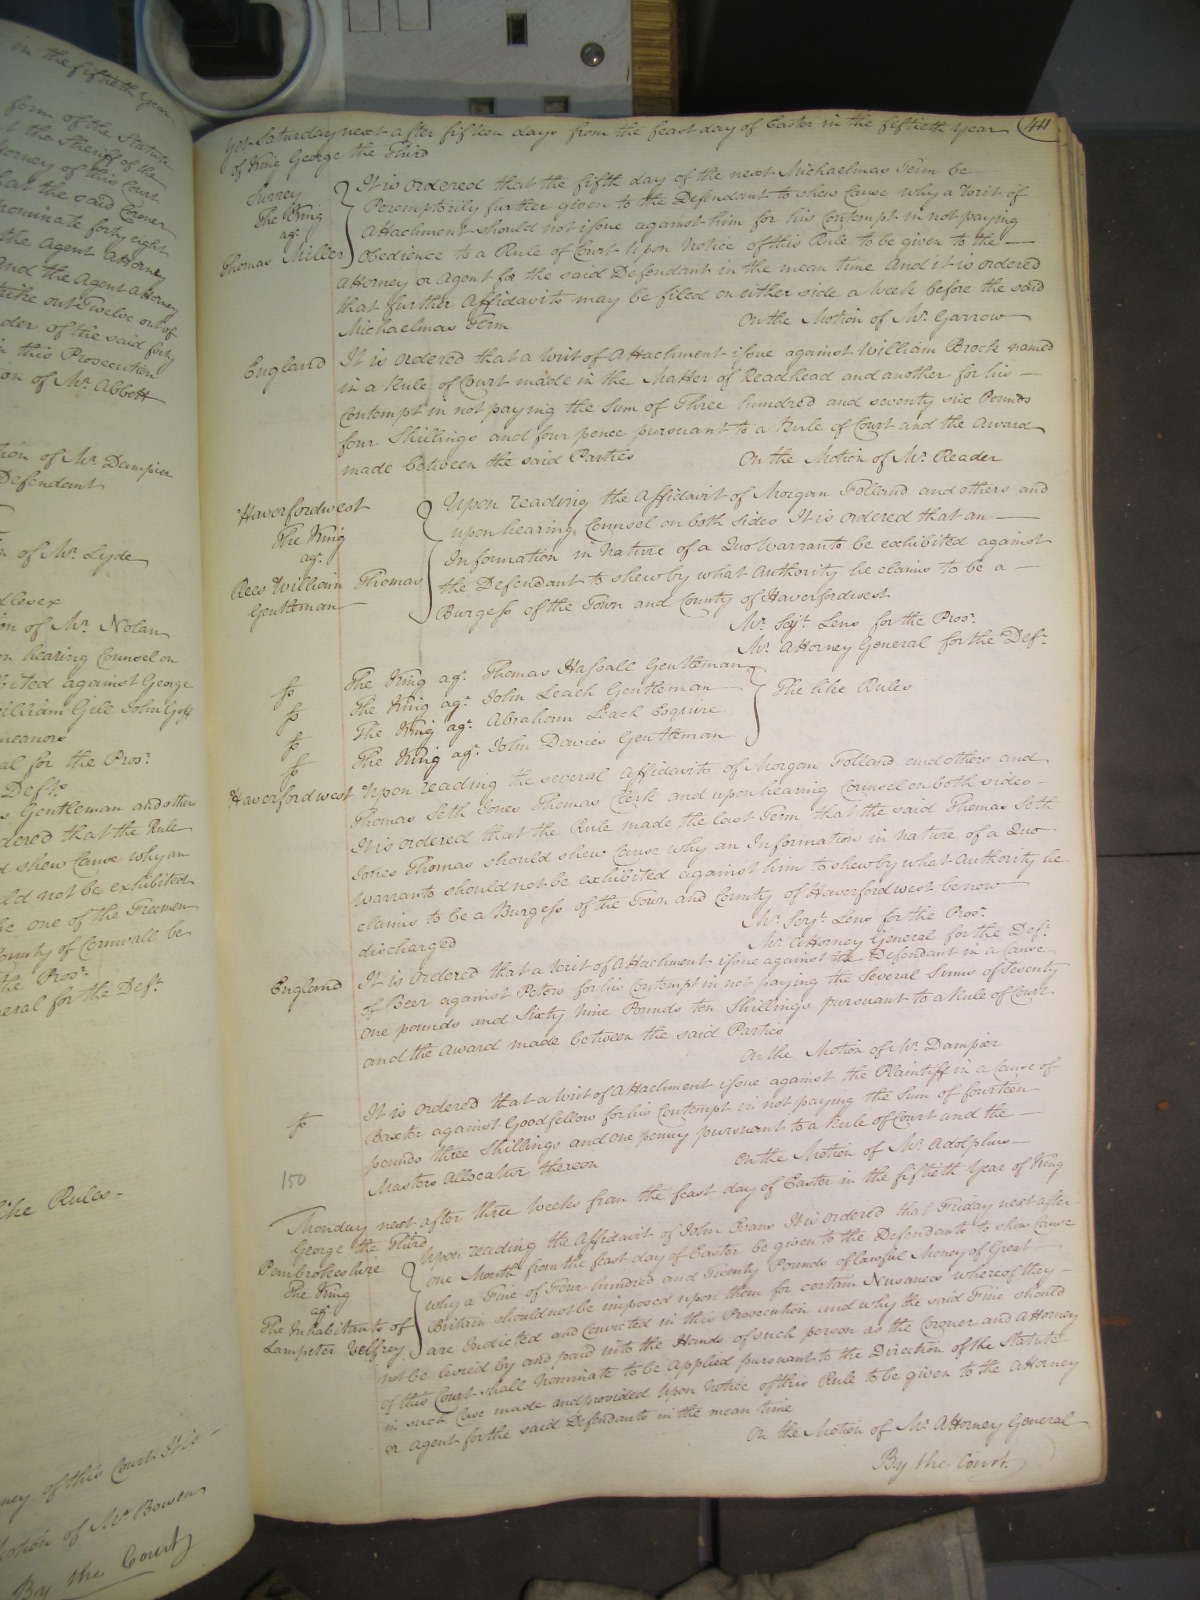 in the fiftieth Year
form of the Statute
the Sheriff of the
Attorney of this Court
that the said Coroner
nominate forty eight
the Agent Attorney
And the Agent Attorney
strike out Twelve out of
der of the said forty
in this Prosecution
on of Mr. Abbott
tion of Mr. Dampier
Defendant
n of Mr. Lyde
dlesex
on of Mr. Nolan
on hearing Counsel on
bited against George
William Gill John Goff
meanors
al for the Prosr.
Defts.
s Gentleman and others
dered that the Rule
d shew Cause why an
uld not be exhibited
be one of the Freemen
County of Cornwall be
the Prosr.
neral for the Deft.
like Rules
ney of this Court It is
Motion of Mr. Bowen
By the Court
Yet Saturday next after fifteen days from the feast day of Easter in the fiftieth Year 441
of King George the Third
Surrey
The King
agt.
Thomas Miller
It is ordered that the fifth day of the next Michaelmas Term be
Peremptorily further given to the Defendant to shew Cause why a Writ of
Attachment should not issue against him for his Contempt in not paying
obedience to a Rule of Court upon Notice of this Rule to be given to the
Attorney or Agent for the said Defendant in the mean time And it is ordered
that further Affidavits may be filed on either side a Week before the said
Michaelmas Term On the Motion of Mr. Garrow
England It is ordered that a Writ of Attachment issue against William Brock named
in a Rule of Court made in the Matter of Readhead and another for his
Contempt in not paying the Sum of Three hundred and seventy six Pounds
four Shillings and four pence pursuant to a Rule of Court and the Award
made between the said Parties On the Motion of Mr. Reader
Haverfordwest
The King
agt.
Rees William Thomas
Gentleman
Upon reading the Affidavit of Morgan Folland and others and
upon hearing Counsel on both sides It is ordered that an
Information in Nature of a Quo Warranto be exhibited against
the Defendant to shew by what Authority he claims to be a
Burgess of the Town and County of Haverfordwest
Mr. Serjt. Lens for the Prosr.
Mr. Attorney General for the Deft.
The King agt. Thomas Hassall Gentleman
The King agt. John Leach Gentleman
The King agt. Abraham Leach Esquire
The King agt. John Davies Gentleman
The like Rules
Haverfordwest Upon reading the several Affidavits of Morgan Folland and others and
Thomas Seth Jones Thomas Clerk and upon hearing Counsel on both sides
It is ordered that the Rule made the last Term that the said Thomas Seth
Jones Thomas should shew Cause why an Information in Nature of a Quo
Warranto should not be exhibited against him to shew by what Authority he
claims to be a Burgess of the Town and County of Haverfordwest be now
discharged Mr. Serjt. Lens for the Prosr.
Mr. Attorney General for the Deft.
England It is ordered that a Writ of Attachment issue against the Defendant in a Cause
of Beer against Peters for his Contempt in not paying the Several Sums of Seventy
One pounds and Sixty Nine Pounds ten Shillings pursuant to a Rule of Court
and the Award made between the said Parties
On the Motion of Mr. Dampier
It is ordered that a Writ of Attachment issue against the Plaintiff in a Cause of
Baxter against Goodfellow for his Contempt in not paying the Sum of fourteen
pounds three Shillings and one penny pursuant to a Rule of Court and the
150 Masters Allocatur thereon On the Motion of Mr. Adolphus
Monday next after three Weeks from the feast day of Easter in the fiftieth Year of King
George the Third
Pembrokeshire
The King
agt.
The Inhabitants of
Lampeter Velfrey
Upon reading the Affidavit of John Evans It is ordered that Friday next after
one Month from the feast day of Easter be given to the Defendants to shew Cause
why a Fine of Four hundred and Twenty Pounds of lawful Money of Great
Britain should not be imposed upon them for certain Nusances whereof they
are Indicted and Convicted in this Prosecution and why the said Fine should
not be levied by and paid into the Hands of such person as the Coroner and Attorney
of this Court shall Nominate to be applied pursuant to the Direction of the Statute
in such Case made and provided Upon Notice of this Rule to be given to the Attorney
or Agent for the said Defendants in the mean time
On the Motion of Mr. Attorney General
By the Court.